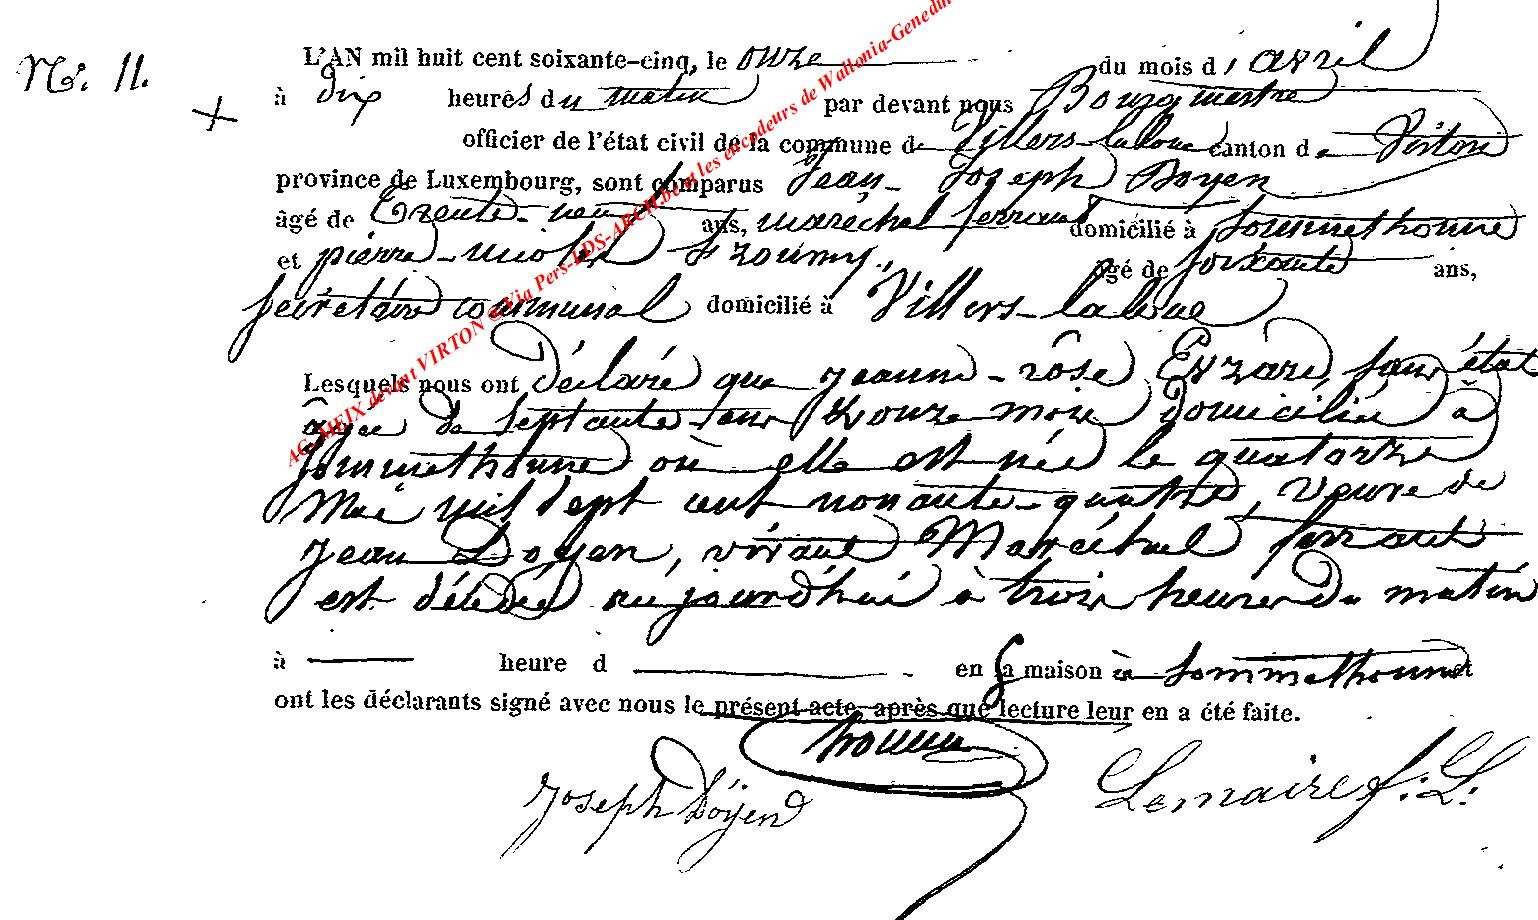 N°. 11.
L'AN mil huit cent soixante-cinq, le onze du mois d'avril
à dix heures du matin par devant nous Bourgmestre
officier de l'état civil de la commune de Villers-laloue canton de Virton
province de Luxembourg, sont comparus Jean-Joseph Doyen
âgé de trente-neuf ans, maréchal ferrant domicilié à Sommethonne
et pierre-nicolas âgé de soixante ans,
secrétaire communal domicilié à Villers-laloue
Lesquels nous ont déclaré que jeanne-rôse Evrard, sans état
âgée de septante-ans onze mois domiciliée à
Sommethonne où elle est née le quatorze
Mai mil sept cent nonante-quatre, veuve de
Jean Doyen, vivant Maréchal ferrant
est décédée aujourd'hui à trois heures du matin
à heure d en sa maison à Sommethonne et
ont les déclarants signé avec nous le présent acte, après que lecture leur en a été faite.
Joseph Doyen Lemaire f. L.